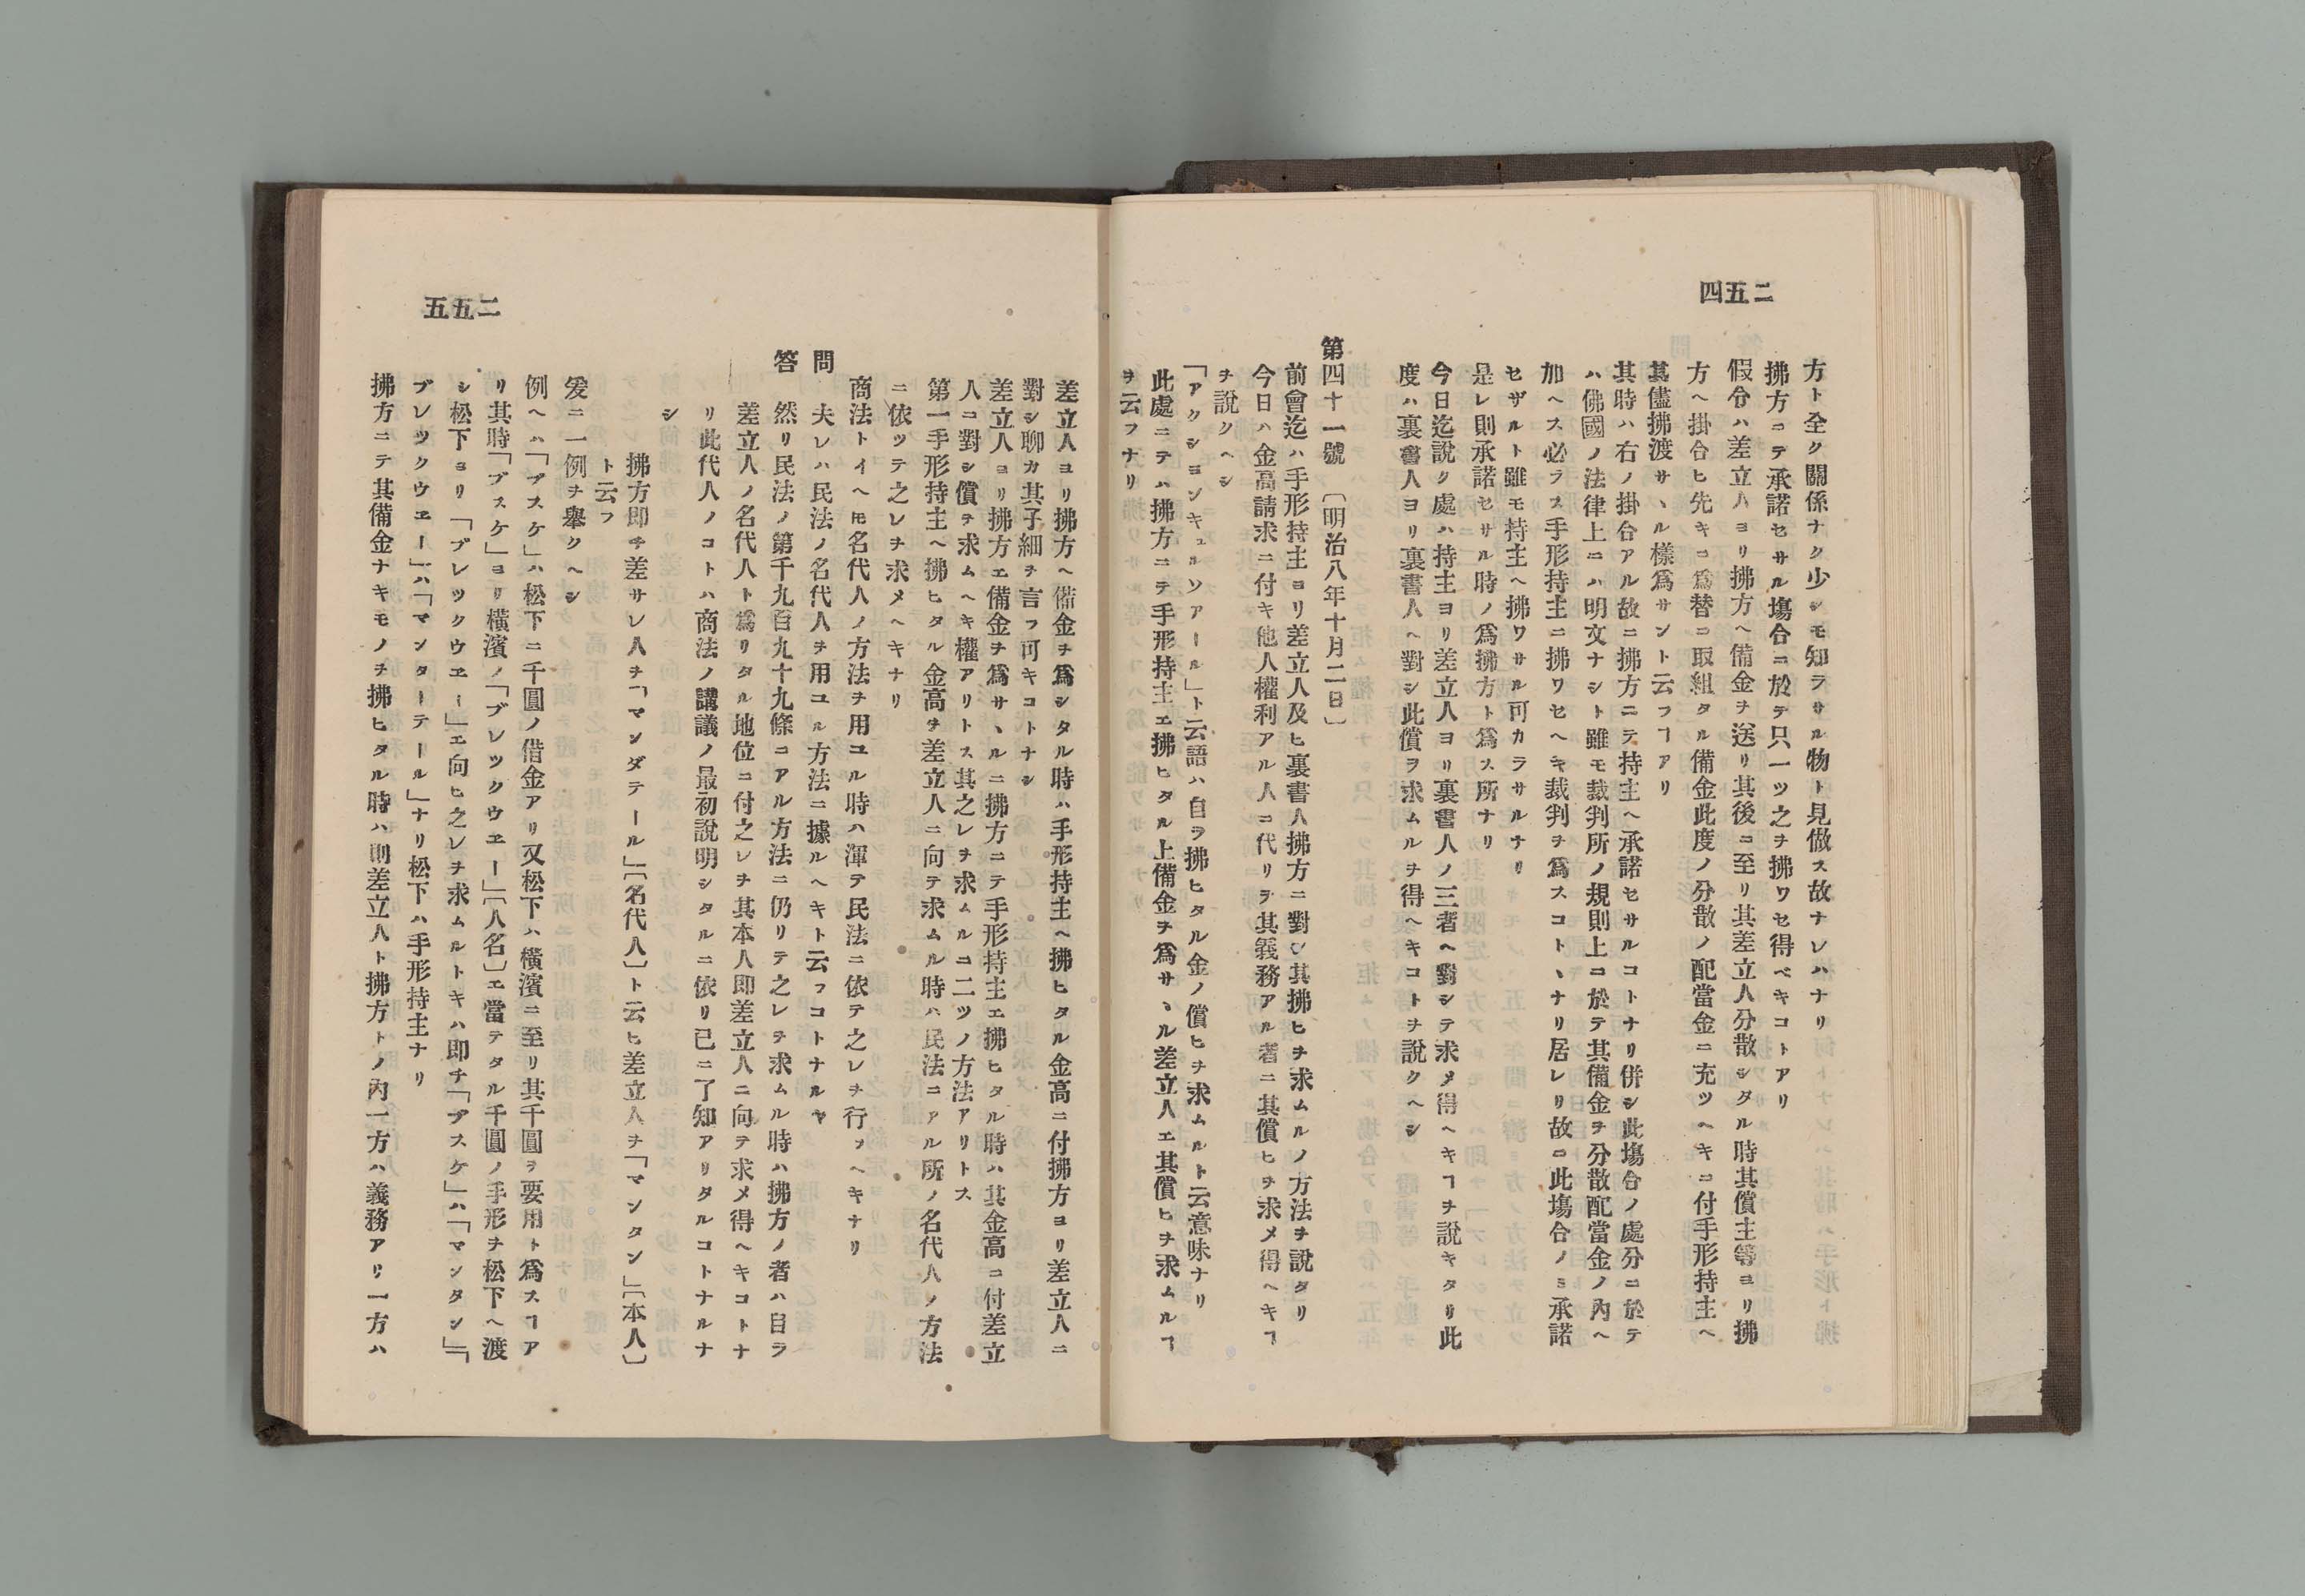 二五四
方ト全ク關係ナク少シモ知ラサル物ト見做ス故ナレハナリ
拂方ニテ承諾セサル塲合ニ於テ只一ツ之ヲ拂ワセ得ベキコトアリ
假令ハ差立人ヨリ拂方ヘ備金ヲ送リ其後ニ至リ其差立人分散シタル時其償主等ヨリ拂
方ヘ掛合ヒ先キニ爲替ニ取組タル備金此度ノ分散ノ配當金ニ充ツヘキニ付手形持主ヘ
其儘拂渡サヽル樣爲サント云フヿアリ
其時ハ右ノ掛合アル故ニ拂方ニテ持主ヘ承諾セサルコトナリ併シ此塲合ノ處分ニ於テ
ハ佛國ノ法律上ニハ明文ナシト雖モ裁判所ノ規則上ニ於テ其備金ヲ分散配當金ノ內ヘ
加ヘス必ラス手形持主ニ拂ワセヘキ裁判ヲ爲スコトヽナリ居レリ故ニ此塲合ノミ承諾
セザルト雖モ持主ヘ拂ワサル可カラサルナリ
是レ則承諾セサル時ノ爲拂方ト爲ス所ナリ
今日迄說ク處ハ持主ヨリ差立人ヨリ裏書人ノ三者ヘ對シテ求メ得ヘキヿヲ說キタリ此
度ハ裏書人ヨリ裏書人ヘ對シ此償ヲ求ムルヲ得ヘキコトヲ說クヘシ
第四十一號 〔明治八年十月二日〕
前會迄ハ手形持主ヨリ差立人及ヒ裏書人拂方ニ對シ其拂ヒヲ求ムルノ方法ヲ說タリ
今日ハ金高請求ニ付キ他人權利アル人ニ代リテ其義務アル者ニ其償ヒヲ求メ得ヘキヿ
ヲ說クヘシ
「アクションキュルソアール」ト云語ハ自ラ拂ヒタル金ノ償ヒヲ求ムルト云意味ナリ
此處ニテハ拂方ニテ手形持主エ拂ヒタル上備金ヲ爲サヽル差立人エ其償ヒヲ求ムルヿ
ヲ云フナリ
二五五
差立人ヨリ拂方ヘ備金ヲ爲シタル時ハ手形持主ヘ拂ヒタル金高ニ付拂方ヨリ差立人ニ
對シ聊カ其子細ヲ言フ可キコトナシ
差立人ヨリ拂方エ備金ヲ爲サヽルニ拂方ニテ手形持主エ拂ヒタル時ハ其金高ニ付差立
人ニ對シ償ヲ求ムヘキ權アリトス其之レヲ求ムルニ二ツノ方法アリトス
第一手形持主ヘ拂ヒタル金高ヲ差立人ニ向テ求ムル時ハ民法ニアル所ノ名代人ノ方法
ニ依ッテ之レヲ求メヘキナリ
商法トイヘ𪜈名代人ノ方法ヲ用ユル時ハ渾テ民法ニ依テ之レヲ行フヘキナリ
問 夫レハ民法ノ名代人ヲ用ユル方法ニ據ルヘキト云フコトナルヤ
答 然リ民法ノ第千九百九十九條ニアル方法ニ仍リテ之レヲ求ムル時ハ拂方ノ者ハ自ラ
差立人ノ名代人ト爲リタル地位ニ付之レヲ其本人即差立人ニ向テ求メ得ヘキコトナ
リ此代人ノコトハ商法ノ講議ノ最初說明シタルニ依リ已ニ了知アリタルコトナルナ
シ
拂方即チ差サレ人ヲ「マンダテール」〔名代人〕ト云ヒ差立人ヲ「マンタン」〔本人〕
ト云フ
爰ニ一例ヲ舉クヘシ
例ヘハ「ブスケ」ハ松下ニ千圓ノ借金アリ又松下ハ橫濱ニ至リ其千圓ヲ要用ト爲スヿア
リ其時「ブスケ」ヨリ橫濱ノ「ブレックウエー」〔人名〕エ當テタル千圓ノ手形ヲ松下ヘ渡
シ松下ヨリ「ブレックウエー」エ向ヒ之レヲ求ムルトキハ即チ「ブスケ」ハ「マンタン」「
ブレックウエー」ハ「マンターテール」ナリ松下ハ手形持主ナリ
拂方ニテ其備金ナキモノヲ拂ヒタル時ハ則差立人ト拂方トノ內一方ハ義務アリ一方ハ